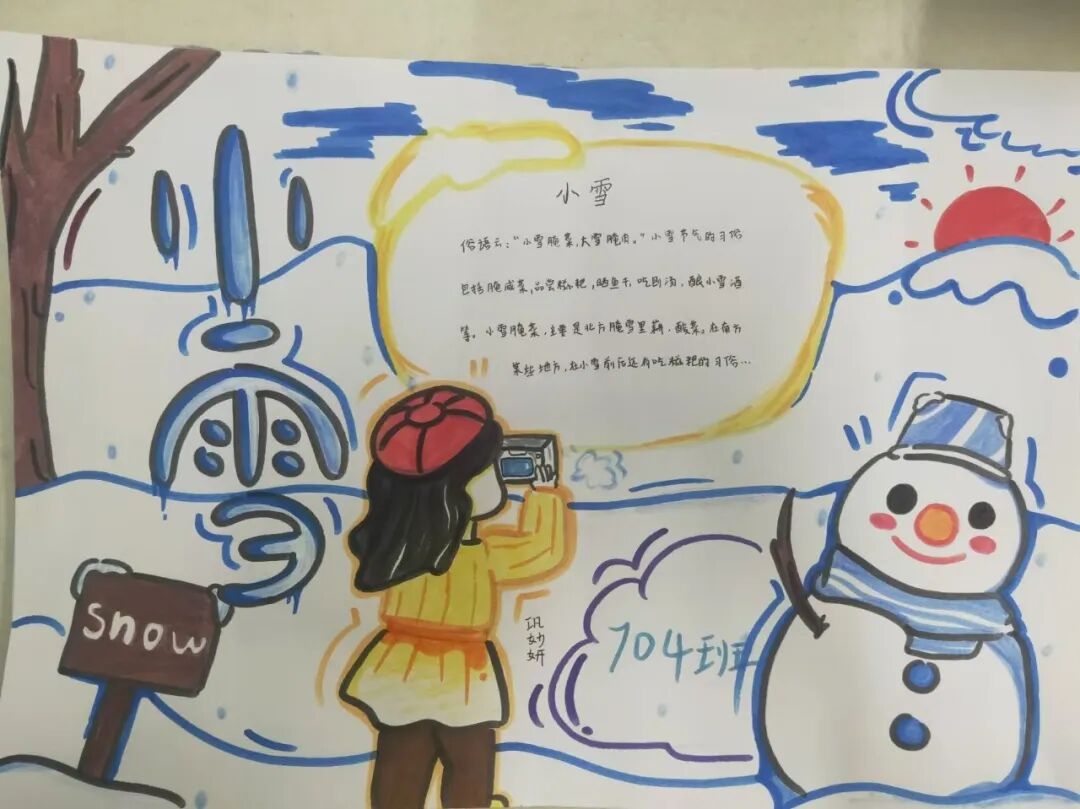 小雪
小雪
俗语云:“小雪腌菜,大雪腌肉。”小雪节气的习俗
包括腌咸菜,品尝糍粑,晒鱼干,吃刨汤,酿小雪酒
等。小雪腌菜,主要是北方腌雪里蕻、酸菜。在南方
某些地方,在小雪前后还有吃糍粑的习俗...
snow
巩妙妍
704班